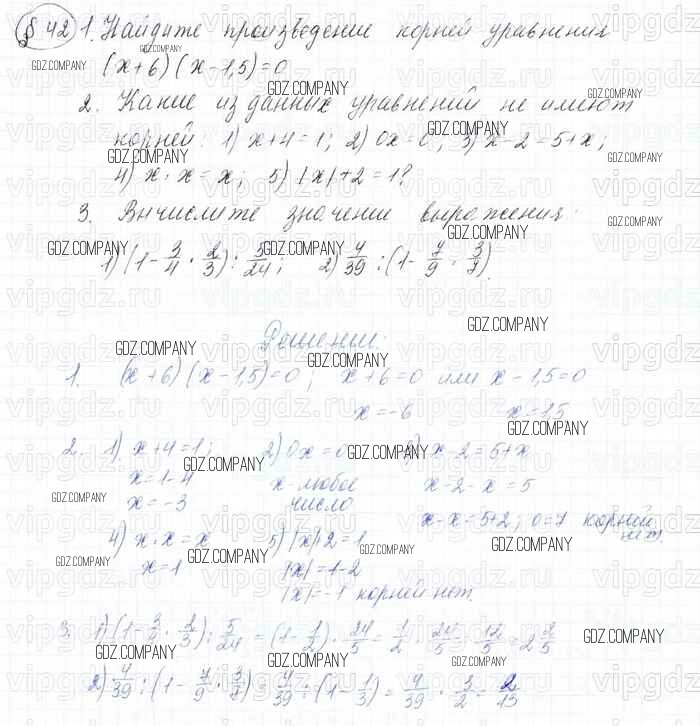 § 42 1. Найдите произведение корней уравнения
(x+6)(x-1,5)=0
2. Какие из данных уравнений не имеют
корней: 1) x+4=1; 2) 0x=0; 3) x-2=5+x;
4) x·x=x; 5) |x|+2=1?
3. Вычислите значение выражения:
1) (1-3/4·2/3):5/24; 2) 4/39:(1-7/9·3/7).
Решение:
1. (x+6)(x-1,5)=0; x+6=0 или x-1,5=0
x=-6 x=1,5
2. 1) x+4=1; 2) 0x=0 x-2=5+x
x=1-4 x-любое x-2-x=5
x=-3 число
x-x=5+2; 0=7 корней
нет
4) x·x=x 5) |x|+2=1
x=1 |x|=1-2
|x|=-1 корней нет.
3. 1) (1-3/4·2/3):5/24=(1-1/2)·24/5=1/2·24/5=12/5=2 2/5
2) 4/39:(1-7/9·3/7)=4/39:(1-1/3)=4/39·3/2=2/13
GDZ.COMPANY
vipgdz.ru